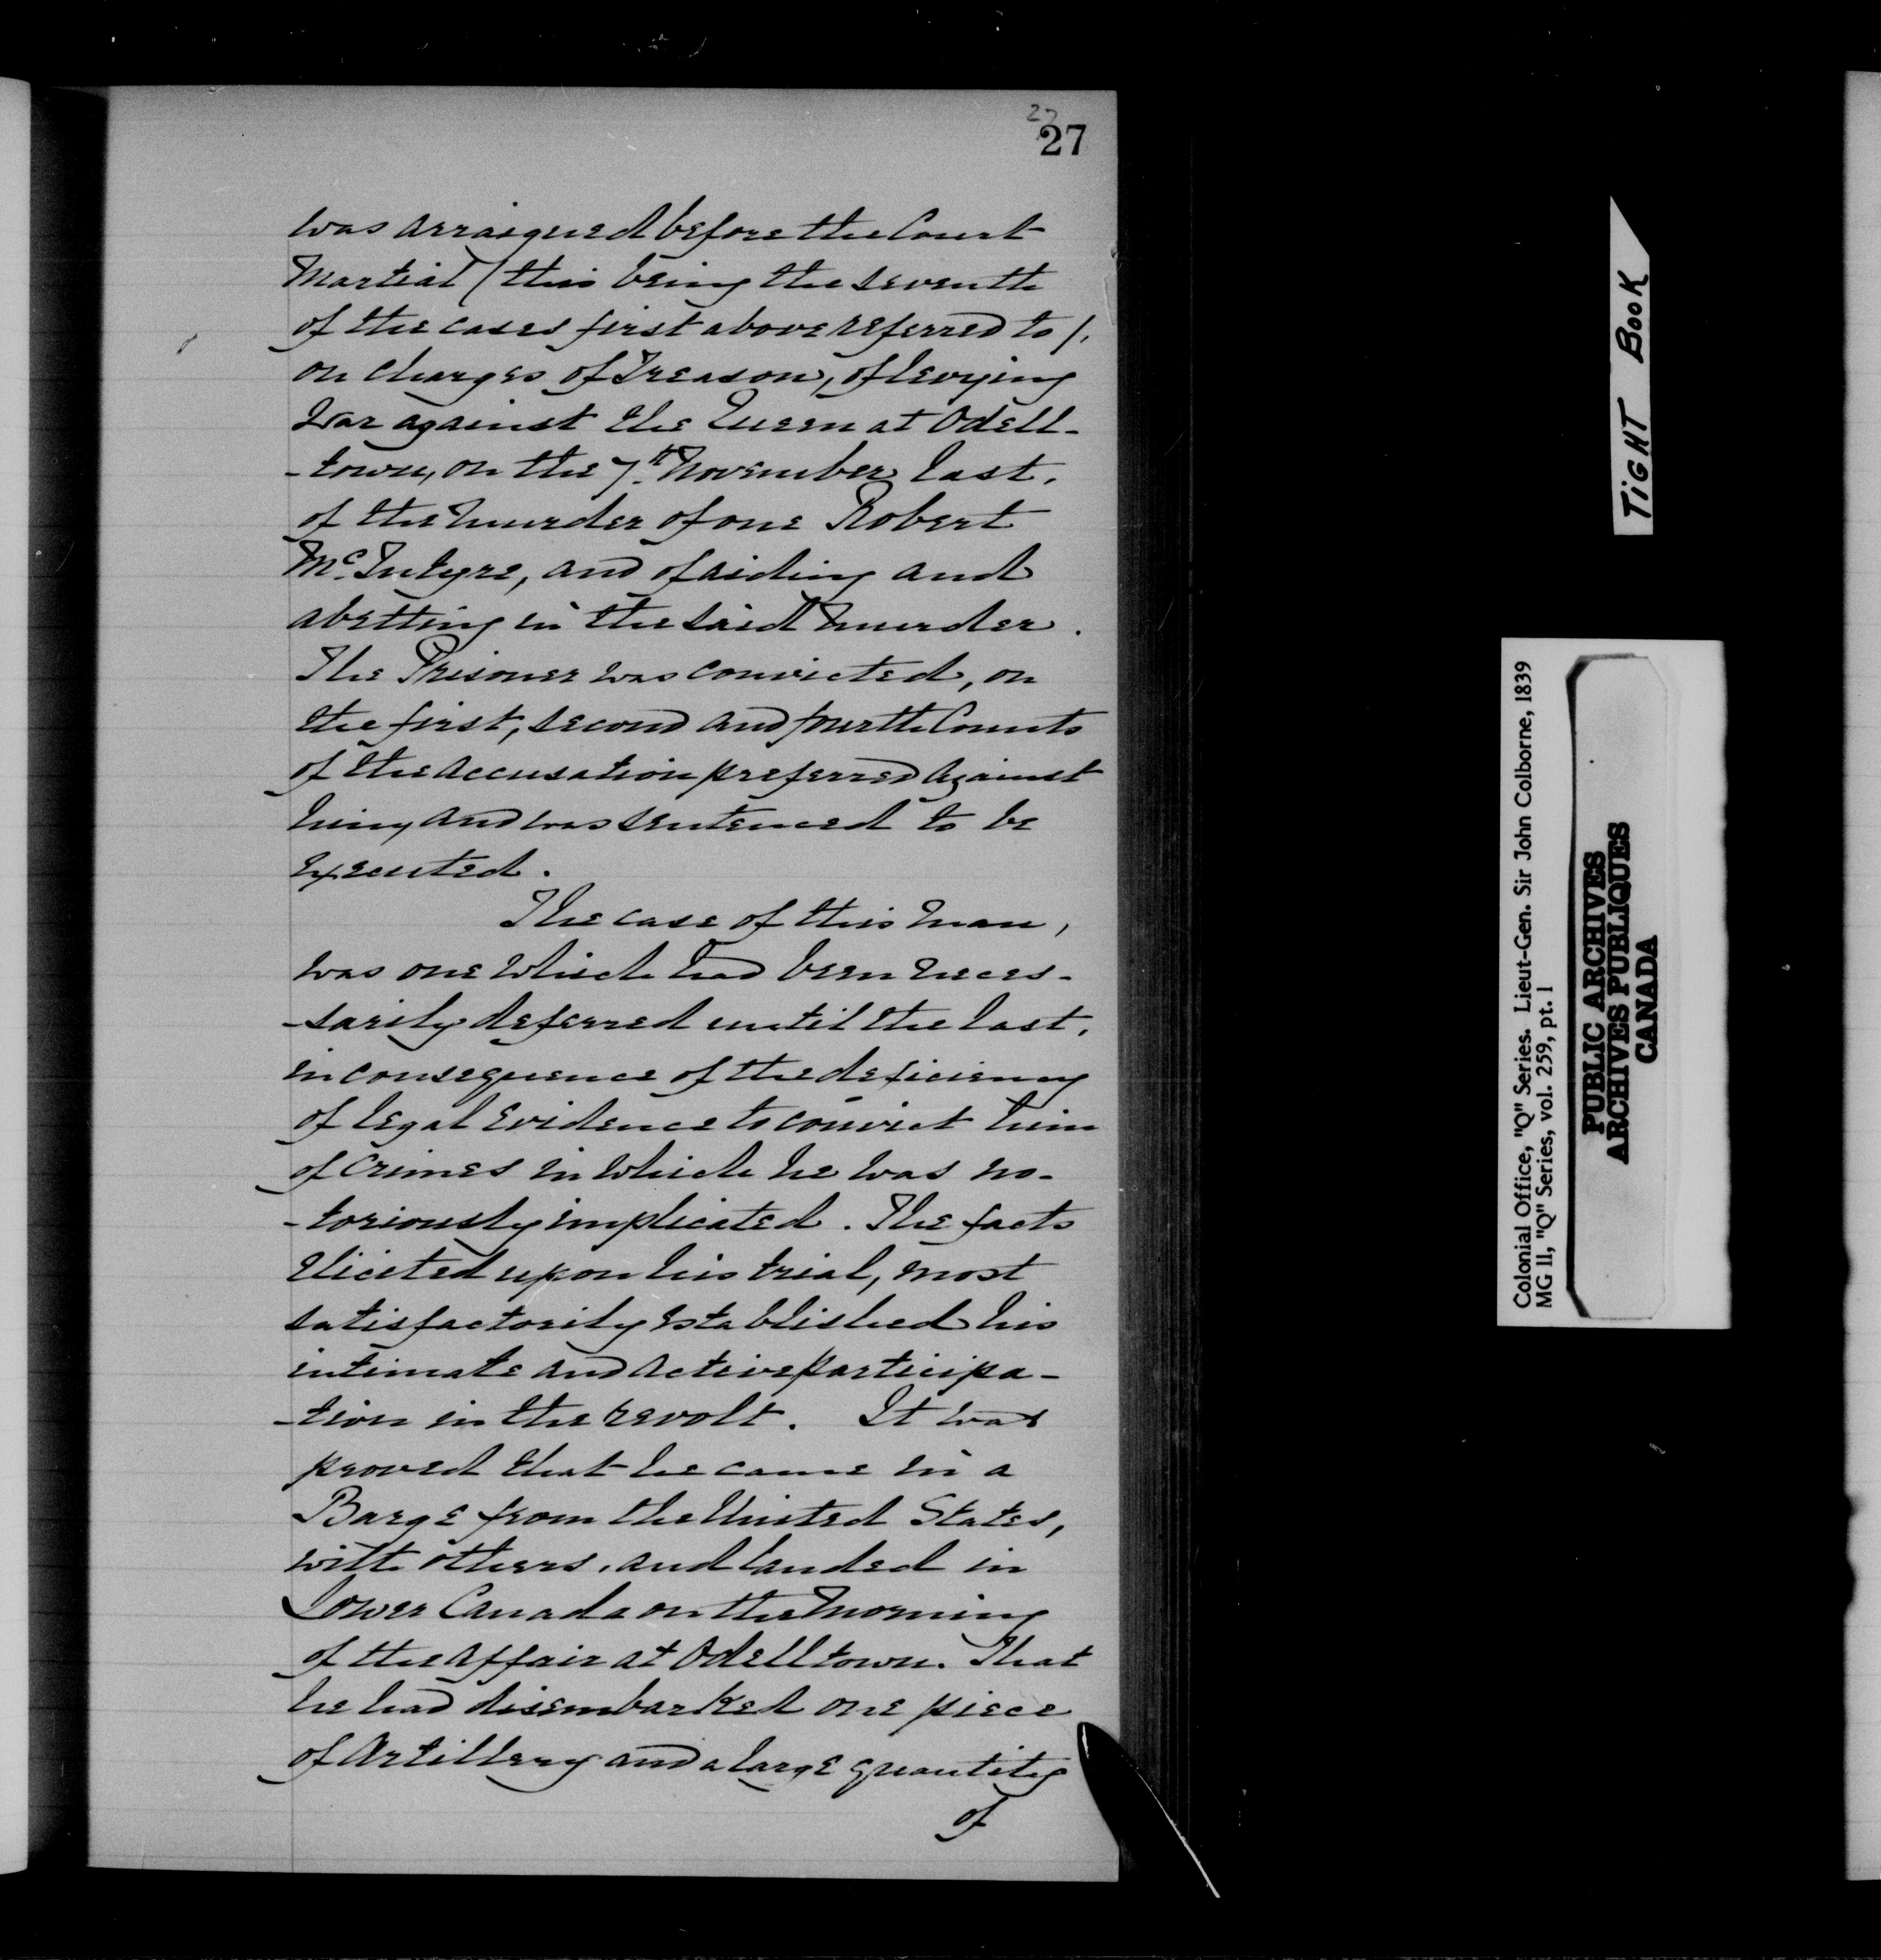 27
27
was arraigned before the Court
Martial (this being the seventh
of the cases first above referred to),
on charges of Treason, of levying
War against the Queen at Odell-
-town, on the 7th November last,
of the Murder of one Robert
McIntyre, and of aiding and
abetting in the said Murder.
The Prisoner was convicted, on
the first, second and fourth Counts
of the accusation preferred against
him, and was sentenced to be
executed.
The case of this man,
was one which had been neces-
-sarily deferred until the last,
in consequence of the deficiency
of legal evidence to convict him
of crimes in which he was no-
-toriously implicated. The facts
elicited upon his trial, most
satisfactorily established his
intimate and active participa-
-tion in the revolt. It was
proved that he came in a
Barge from the United States,
with others, and landed in
Lower Canada on the morning
of the affair at Odelltown. That
he had disembarked one piece
of Artillery and a large quantity
of
TIGHT BOOK
Colonial Office, "Q" Series. Lieut-Gen. Sir John Colborne, 1839
MG 11, "Q" Series, vol. 259, pt. 1
PUBLIC ARCHIVES
ARCHIVES PUBLIQUES
CANADA